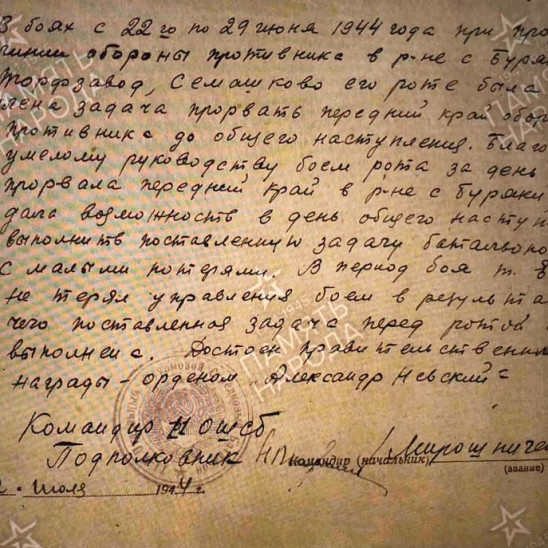 В боях с 22 го по 29 июня 1944 года при про
обороны противника в р-не с Буря
Торфзавод, Семашково его роте была
лена задача прорвать передний край обор
противника до общего наступления. Благо
умелому руководству боем рота за день
прорвала передний край в р-не с Буряки
дала возможность в день общего наступ
выполнить поставленную задачу батальоно
с малыми потерями. В период боя т.
не терял управления боем в результа
чего поставленная задача перед ротой
выполнена. Достоен правительственни
награды - орденом "Александр Невский"
Командир 11 ОШСБ
Подполковник командир (начальник) Мирошниче
(звание)
июля 1944 г.
ПАМЯТЬ НАРОДА